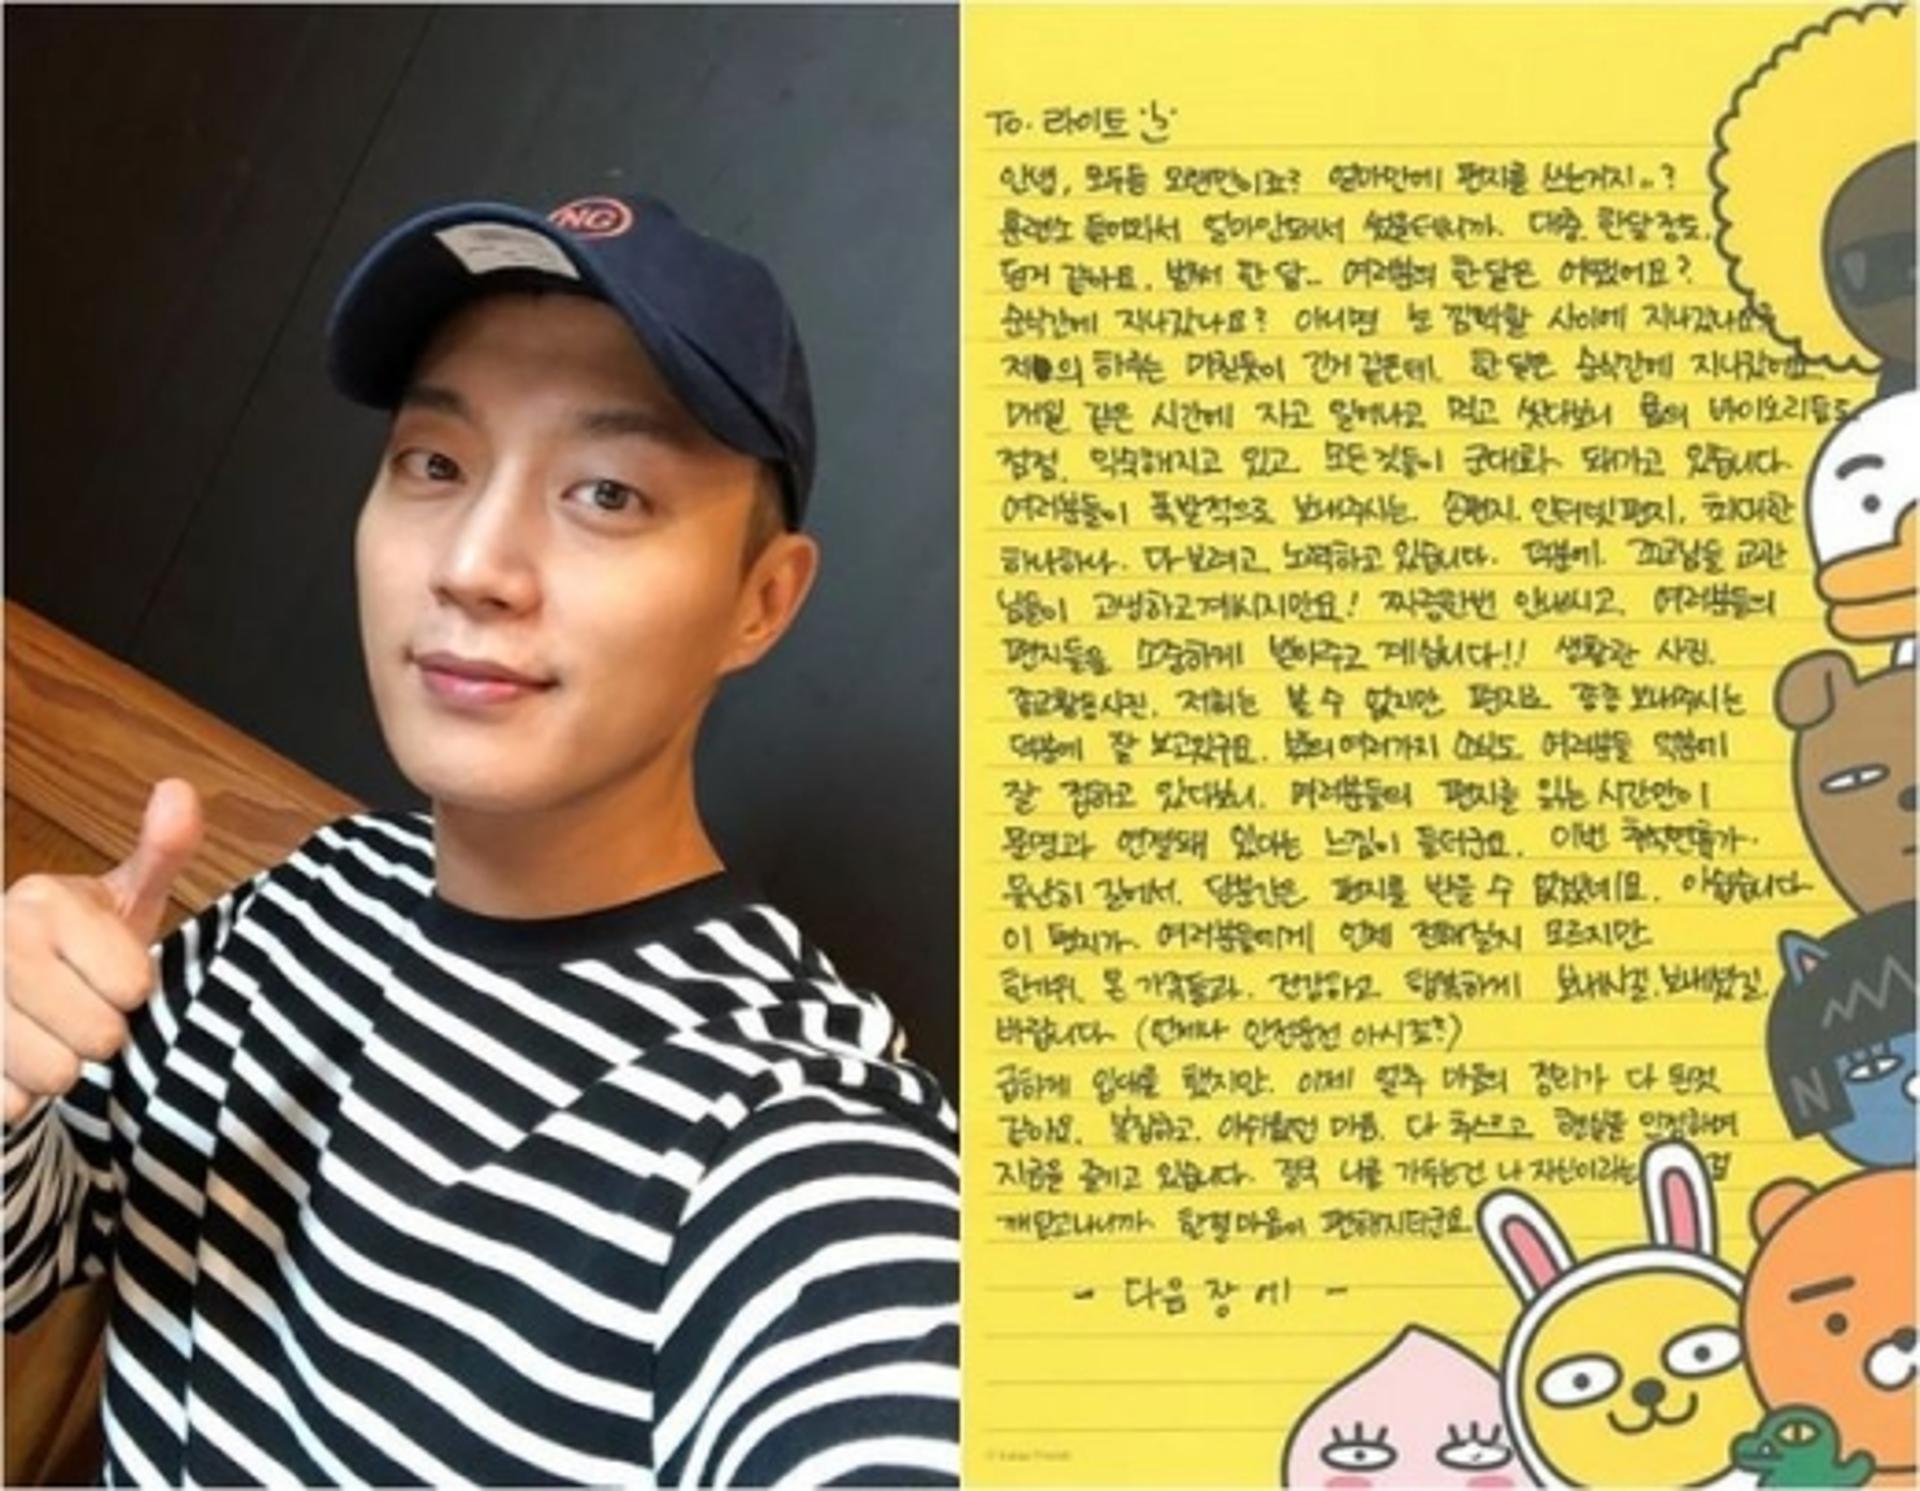 NG
To. 라이트
안녕, 모두들 오랜만이죠? 얼마만에 편지를 쓰는거지..?
훈련소 들어와서 얼마안돼서 썼을테니까. 대충 한달정도.
된거 같아요. 벌써 한 달.. 여러분의 한달은 어땠어요?
순식간에 지나갔나요? 아니면 눈 깜빡할 사이에 지나갔나요?
의 하루는 미친듯이 긴거 같은데. 한달은 순식간에 지나갔어요
매일 같은 시간에 자고 일어나고 먹고 씻다보니 몸의 바이오리듬도
점점. 익숙해지고 있고 모든것들이 군대화 돼가고 있습니다.
여러분들이 폭발적으로 보내주시는. 손편지. 인터넷편지. 최대한
하나하나. 다 보려고 노력하고 있습니다. 덕분에. 조교님들 교관
님들이 고생하고계시지만요! 짜증한번 안내시고. 여러분들의
편지들을 소중하게 받아주고 계십니다!! 생활관 사진.
종교활동사진. 저희는 볼 수 없지만 편지로 종종 보내주시는
덕분에 잘 보고있구요. 여러가지 소식도 여러분들 덕분에
잘 접하고 있다보니. 여러분들의 편지를 읽는 시간만이
문명과 연결돼 있다는 느낌이 들더군요. 이번 추석연휴가
유난히 길어서. 당분간은 편지를 받을 수 없겠네요. 아쉽습니다
이 편지가. 여러분들에게 언제 전해질지 모르지만
한가위. 온 가족들과. 건강하고 행복하게 보내시길. 보내셨길.
바랍니다 (언제나 안전운전 아시죠?)
급하게 입대를 했지만. 이제 얼추 마음의 정리가 다 된것
같아요. 복잡하고. 아쉬웠던 마음. 다 추스르고 현실을 인정하며
지금을 즐기고 있습니다. 결국 나를 가두는건 나 자신이라는 걸
깨닫고나니까 한결 마음이 편해지더군요.
- 다음 장 에 -